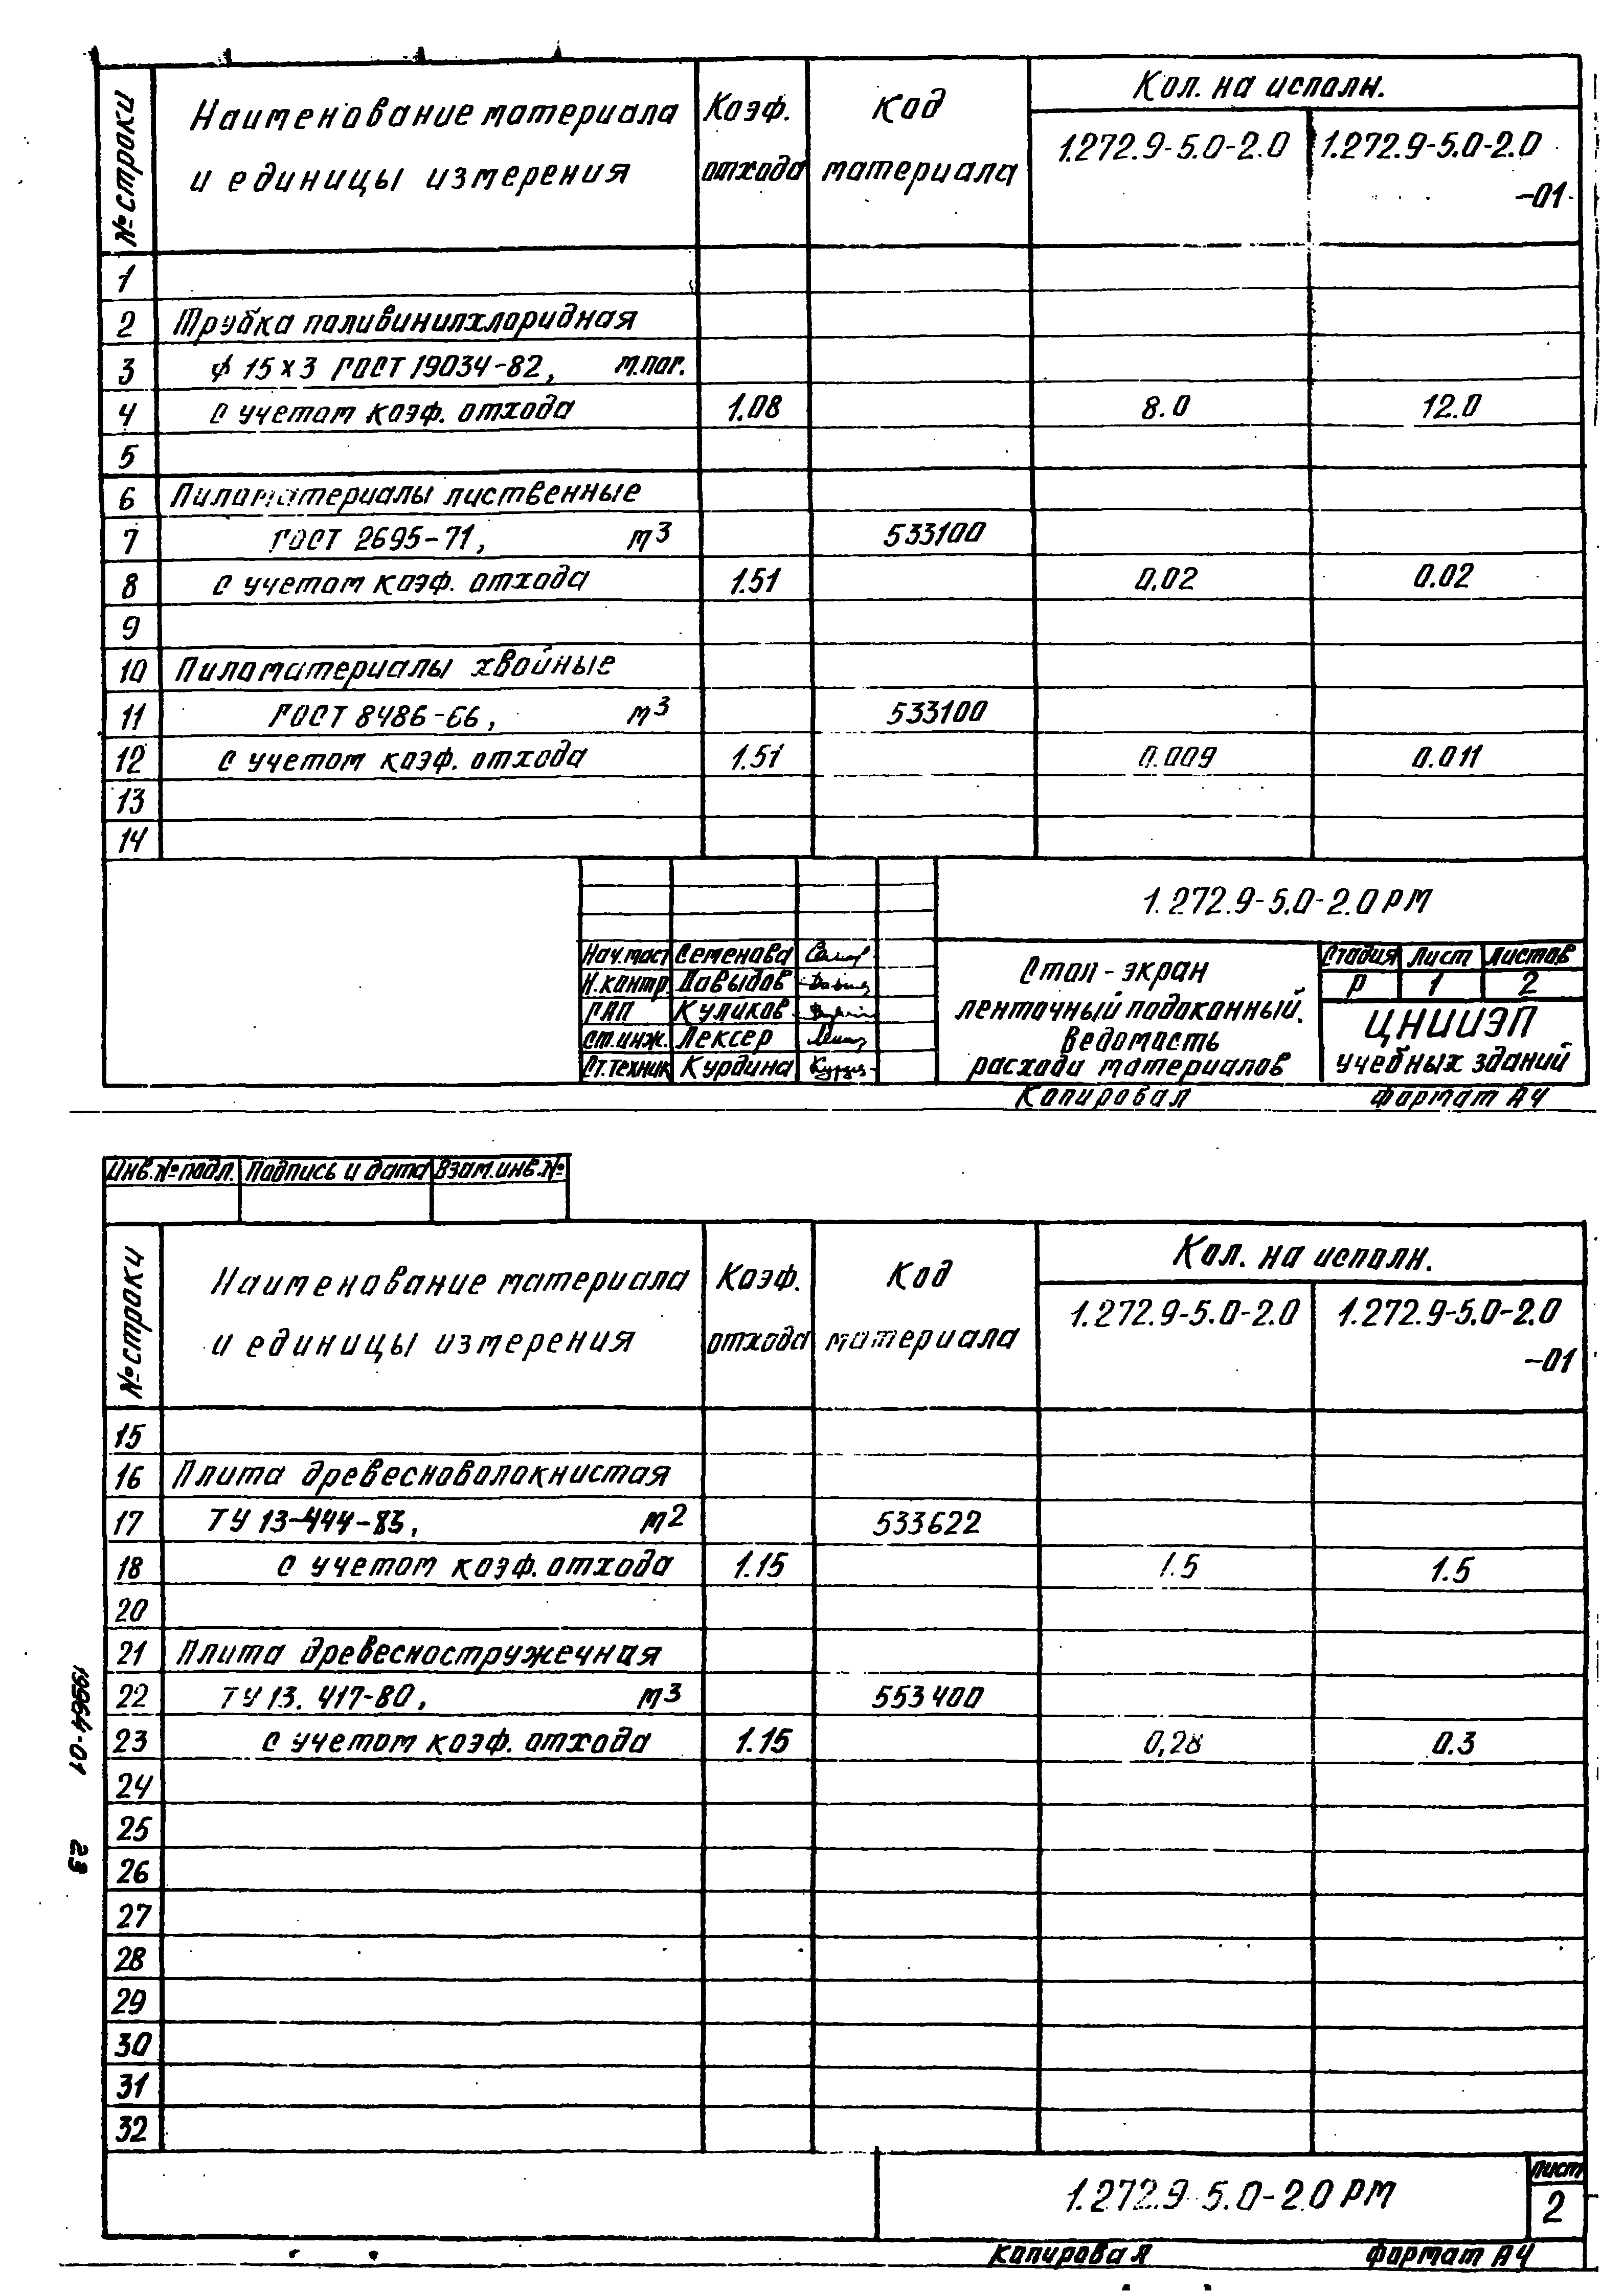 № строки
Наименование материала
и единицы измерения
Коэф.
отхода
Код
материала
Кол. на исполн.
1.272.9-5.0-2.0
1.272.9-5.0-2.0
-01
1
2 Трубка поливинилхлоридная
3 ϕ 15 х 3 ГОСТ 19034-82, м.пог.
4 с учетом коэф. отхода 1.08 8.0 12.0
5
6 Пиломатериалы лиственные
7 ГОСТ 2695-71, м3 533100
8 с учетом коэф. отхода 1.51 0.02 0.02
9
10 Пиломатериалы хвойные
11 ГОСТ 8486-66, м3 533100
12 с учетом коэф. отхода 1.51 0.009 0.011
13
14
1.272.9-5.0-2.0 РМ
Нач.маст Семенова
Н.контр. Давыдов
ГАП Куликов
Ст.инж. Лексер
Ст.техник Курдина
Стол-экран
ленточный подоконный.
Ведомость
расхода материалов
Стадия Лист Листов
Р 1 2
ЦНИИЭП
учебных зданий
Копировал Формат А4
Инв.№ подл. Подпись и дата Взам.инв.№
№ строки
Наименование материала
и единицы измерения
Коэф.
отхода
Код
материала
Кол. на исполн.
1.272.9-5.0-2.0
1.272.9-5.0-2.0
-01
15
16 Плита древесноволокнистая
17 ТУ 13-444-83, м2 533622
18 с учетом коэф. отхода 1.15 1.5 1.5
20
21 Плита древесностружечная
22 ТУ 13. 417-80, м3 553400
23 с учетом коэф. отхода 1.15 0,28 0.3
24
25
26
27
28
29
30
31
32
19964-01 23
1.272.9-5.0-2.0 РМ
Лист
2
Копировал Формат А4